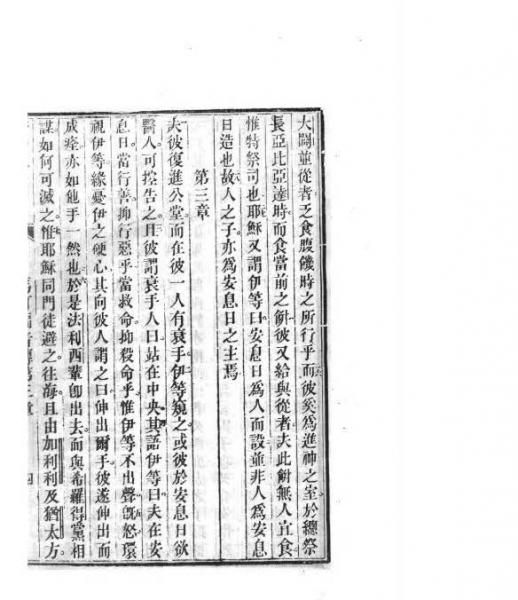 大闢並從者乏食腹饑時之所行乎而彼奚爲進神之室於總祭
長亞比亞達時而食當前之餅彼又給與從者夫此餅無人宜食
惟特祭司也耶穌又謂伊等曰安息日爲人而設並非人爲安息
日造也故人之子亦爲安息日之主焉
第三章
夫彼復進公堂而在彼一人有衰手伊等窺之或彼於安息日欲
醫人可控告之且彼謂衰手人曰站在中央其語伊等曰夫在安
息日當行善抑行惡乎當救命抑殺命乎惟伊等不出聲旣怒環
視伊等緣憂伊之硬心其向彼人謂之曰伸出爾手彼遂伸出而
成痊亦如他手一然也於是法利西輩卽出去而與希羅得黨相
謀如何可滅之惟耶穌同門徒避之往海且由加利利及猶太方
第三章 四